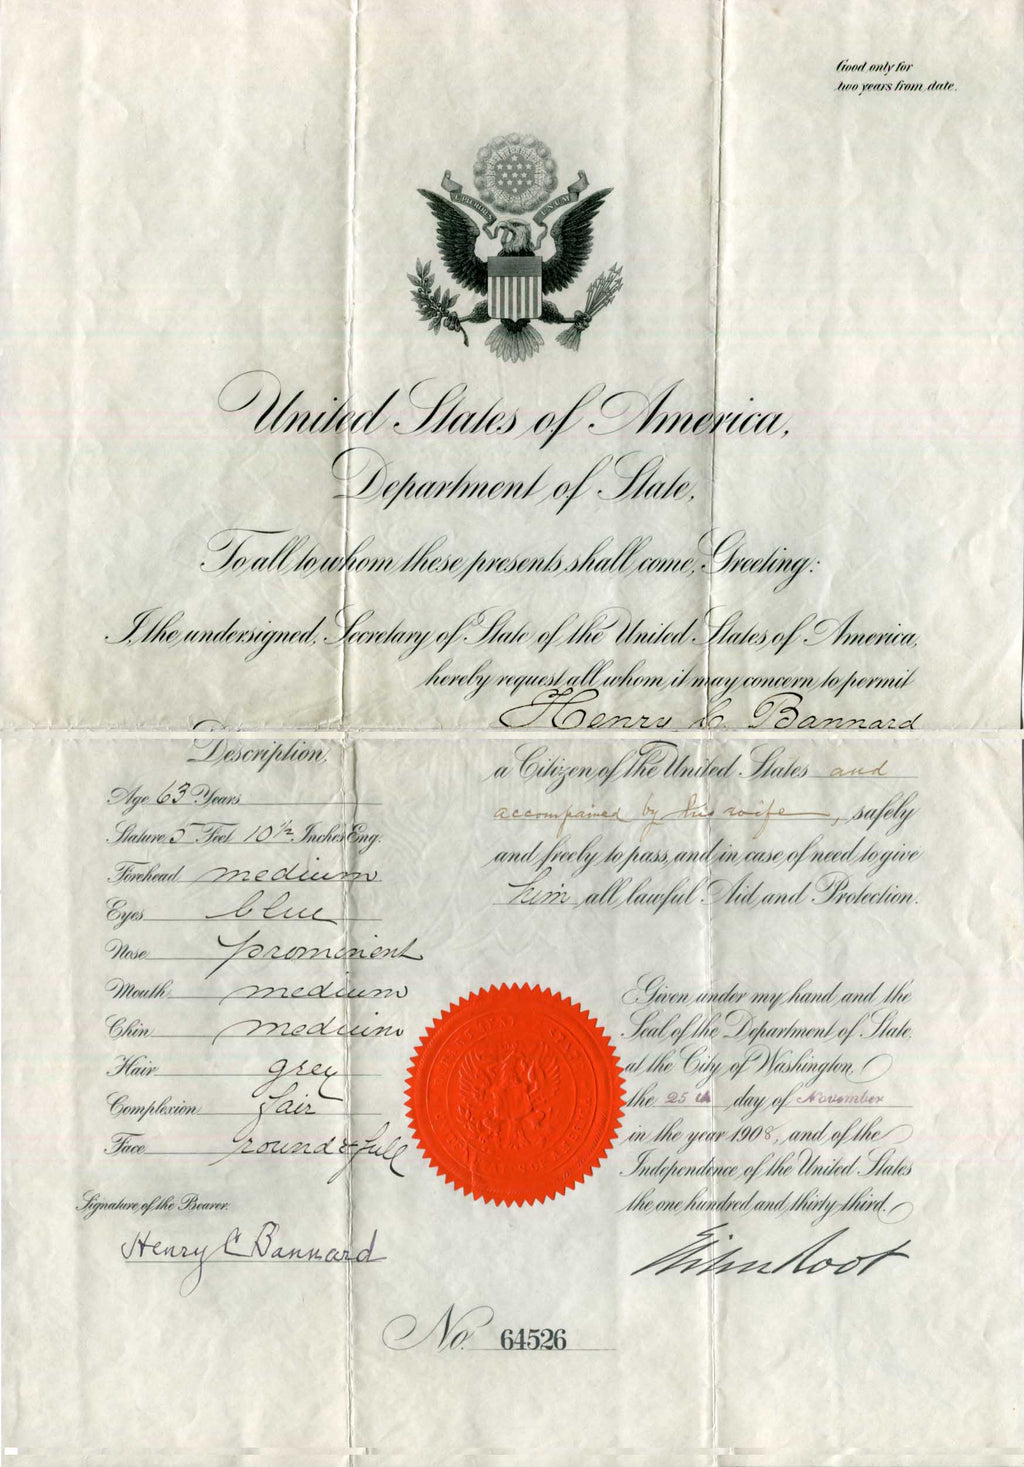 Good only for
two years from date.
E PLURIBUS UNUM
United States of America,
Department of State,
To all to whom these presents shall come, Greeting:
I, the undersigned, Secretary of State of the United States of America,
hereby request all whom it may concern to permit
Henry C. Bannard
a Citizen of the United States and
accompained by his wife, safely
and freely to pass, and in case of need to give
him all lawful Aid and Protection.
Description,
Age 63 Years
Stature 5 Feet 10 1/2 Inches Eng.
Forehead medium
Eyes blue
Nose prominent
Mouth medium
Chin medium
Hair grey
Complexion fair
Face round & full
Signature of the Bearer.
Henry C Bannard
Given under my hand and the
Seal of the Department of State,
at the City of Washington,
the 25th day of November
in the year 1908, and of the
Independence of the United States
the one hundred and thirty third.
Elihu Root
No. 64526